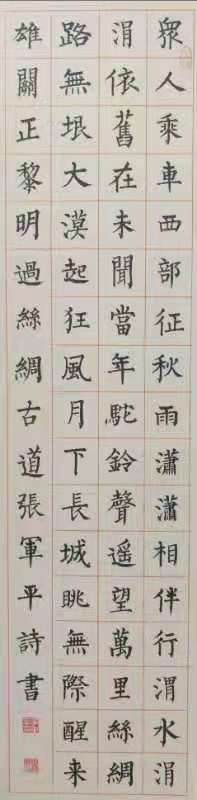 眾人乘車西部征秋雨瀟瀟相伴行渭水涓
涓依舊在未聞當年駝鈴聲遥望萬里絲綢
路無垠大漠起狂風月下長城眺無際醒来
雄關正黎明過絲綢古道張軍平詩書